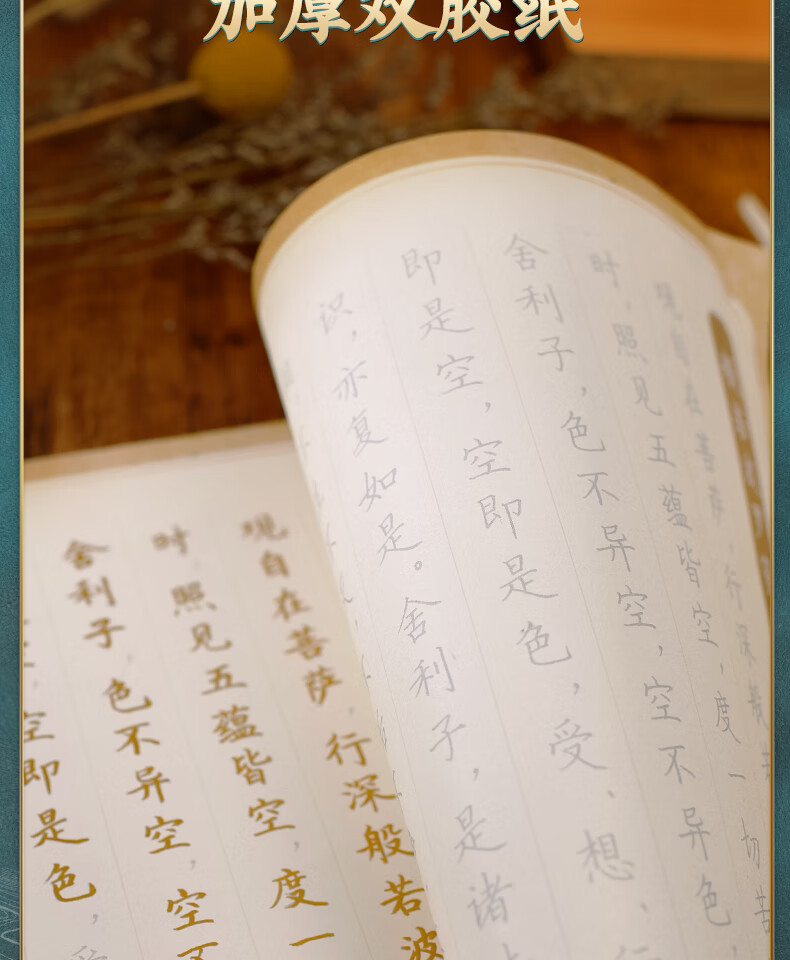 加厚双胶纸
观自在菩萨，行深般
时，照见五蕴皆空，度一切苦
舍利子，色不异空，空不异色，
即是空，空即是色，受、想、行
识，亦复如是。舍利子，是诸
观自在菩萨，行深般若波
时，照见五蕴皆空，度一
舍利子，色不异空，空不
空即是色，受